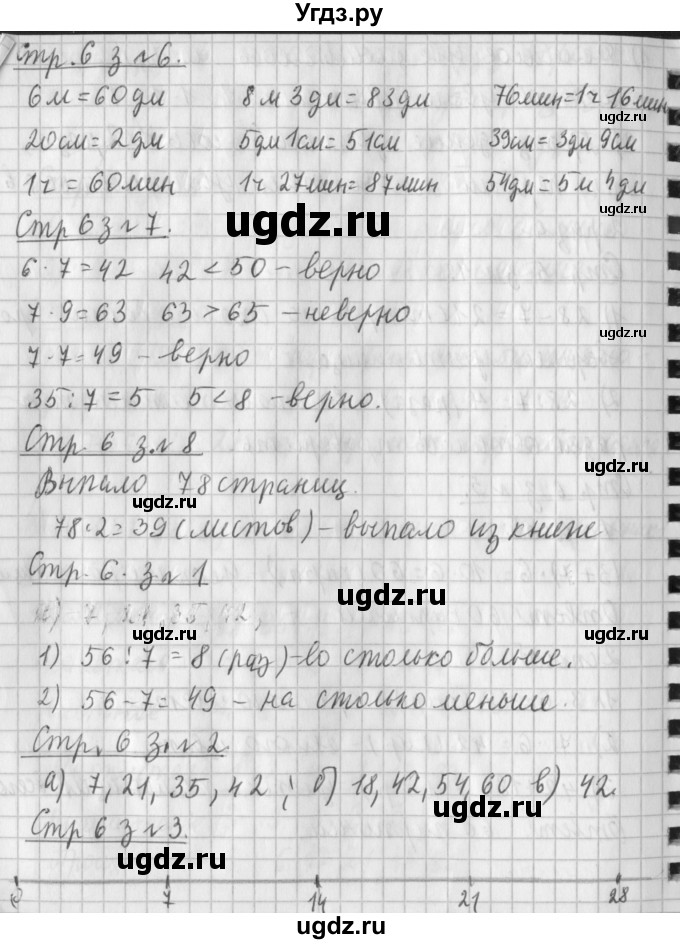 Угдз.ру
Стр. 6 з № 6.
6м = 60дм 8м 3дм = 83дм 76мин = 1ч 16мин
20см = 2дм 5дм 1см = 51см 39см = 3дм 9см
1ч = 60мин 1ч 27мин = 87мин 54дм = 5м 4дм
Стр 6 з № 7.
6 · 7 = 42 42 < 50 – верно
7 · 9 = 63 63 > 65 – неверно
7 · 7 = 49 – верно
35 : 7 = 5 5 < 8 – верно.
Стр. 6 з. № 8
Выпало 78 страниц.
78 : 2 = 39 (листов) – выпало из книги
Стр. 6. з № 1
1) 56 : 7 = 8 (раз) – во столько больше.
2) 56 – 7 = 49 – на столько меньше.
Стр. 6 з. № 2
а) 7, 21, 35, 42 ; б) 18, 42, 54, 60 в) 42.
Стр 6 з № 3.
0 7 14 21 28
ugdz.ru
ugdz.ru
ugdz.ru
ugdz.ru
ugdz.ru
ugdz.ru
ugdz.ru
ugdz.ru
ugdz.ru
ugdz.ru
ugdz.ru
ugdz.ru